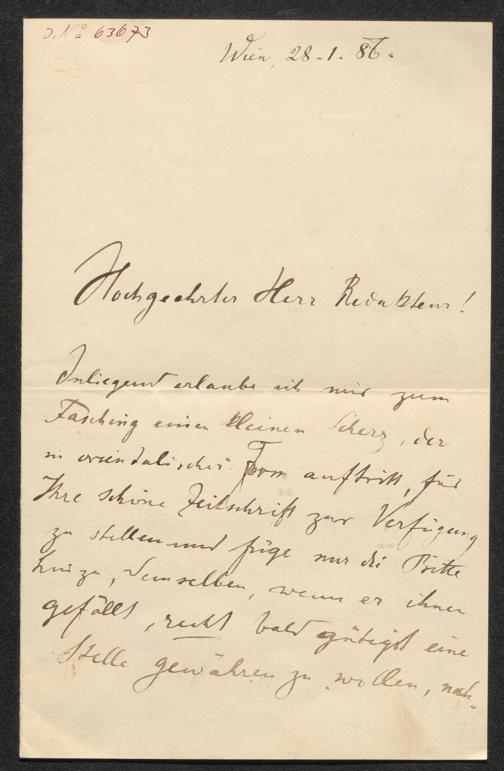 J. No 63673
Wien, 28.1.86.
Hochgeehrter Herr Redakteur!
Inliegend erlaube ich mir zum
Fasching einen kleinen Scherz, der
in orientalischer Form auftritt, für
Ihre schöne Zeitschrift zur Verfügung
zu stellen und füge nur die Bitte
hinzu, demselben, wenn er ihnen
gefällt, recht bald gütigst eine
Stelle gewähren zu wollen, nach-